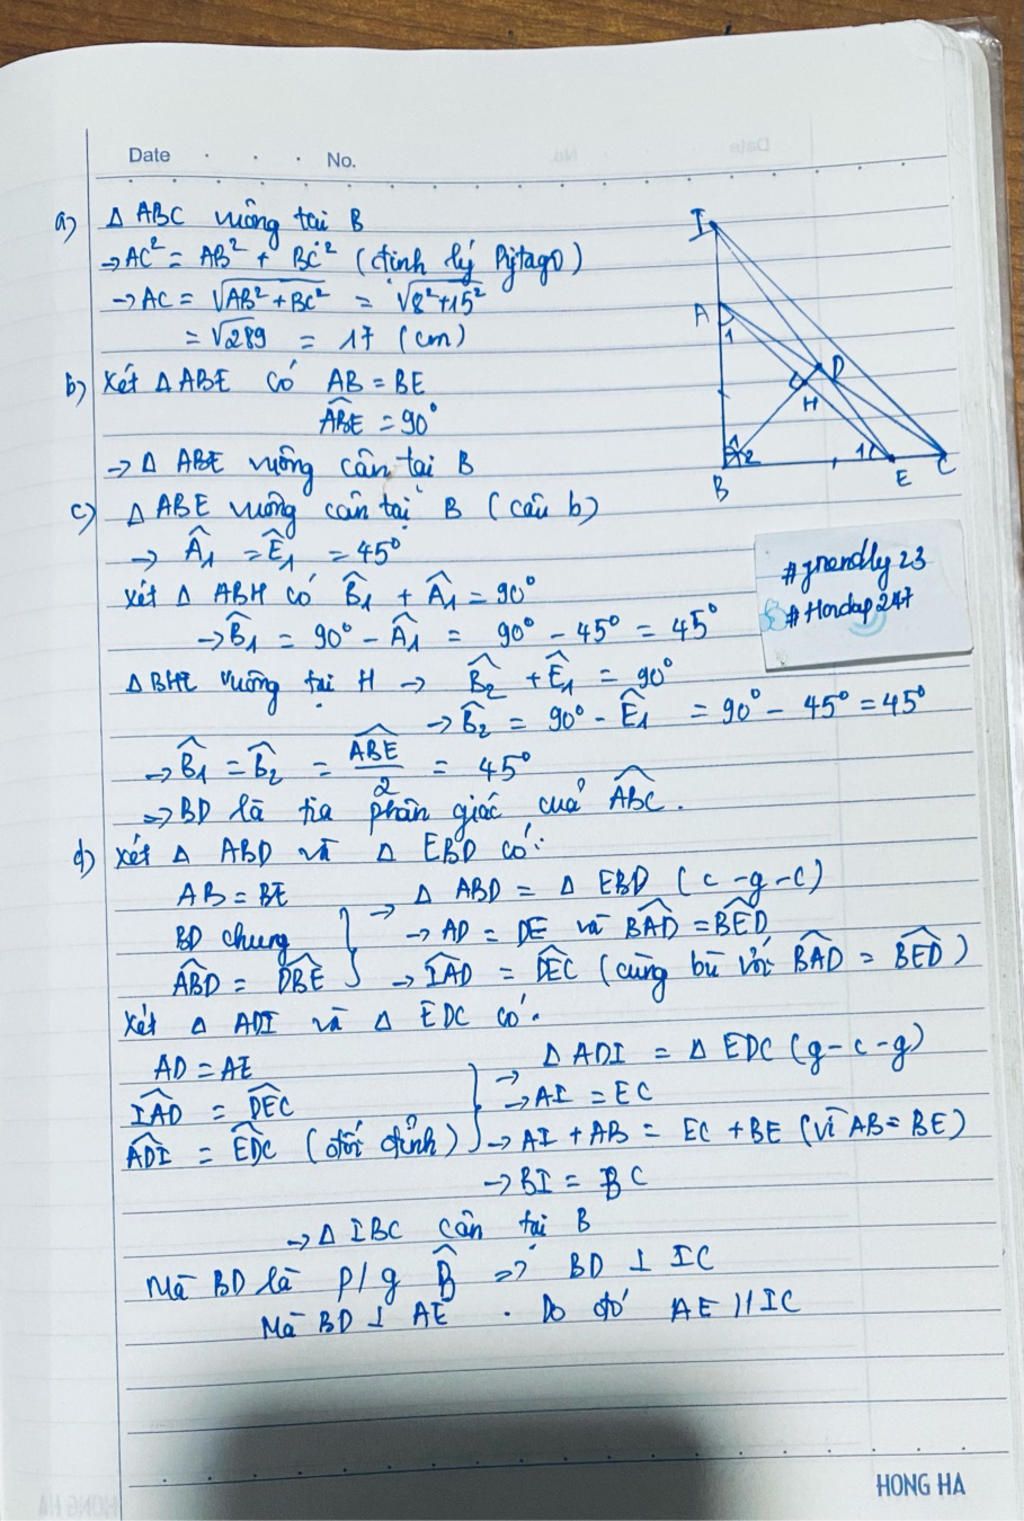 Date . . . No.
a) Δ ABC vuông tại B
→ AC² = AB² + BC² (định lý Pytago)
→ AC = √AB²+BC² = √8²+15²
= √289 = 17 (cm)
b) Xét Δ ABE có AB = BE
ABE = 90°
→ Δ ABE vuông cân tại B
c) Δ ABE vuông cân tại B (câu b)
→ Â₁ = Ê₁ = 45°
Xét Δ ABH có B̂₁ + Â₁ = 90°
→ B̂₁ = 90° - Â₁ = 90° - 45° = 45°
Δ BHE vuông tại H → B̂₂ + Ê₁ = 90°
→ B̂₂ = 90° - Ê₁ = 90° - 45° = 45°
→ B̂₁ = B̂₂ = ABE/2 = 45°
=> BD là tia phân giác của ABC.
d) Xét Δ ABD và Δ EBD có:
AB = BE
BD chung
ABD = DBE
→ Δ ABD = Δ EBD (c-g-c)
→ AD = DE và BAD = BED
→ IAD = DEC (cùng bù với BAD = BED)
Xét Δ ADI và Δ EDC có:
AD = AE
IAD = DEC
ADI = EDC (đối đỉnh)
→ Δ ADI = Δ EDC (g-c-g)
→ AI = EC
→ AI + AB = EC + BE (vì AB = BE)
→ BI = BC
→ Δ IBC cân tại B
Mà BD là p/g B̂ => BD ⊥ IC
Mà BD ⊥ AE . Do đó AE // IC
I
A
1
D
H
1 2
1
B
E
C
#friendly23
#Hoidap247
HONG HA